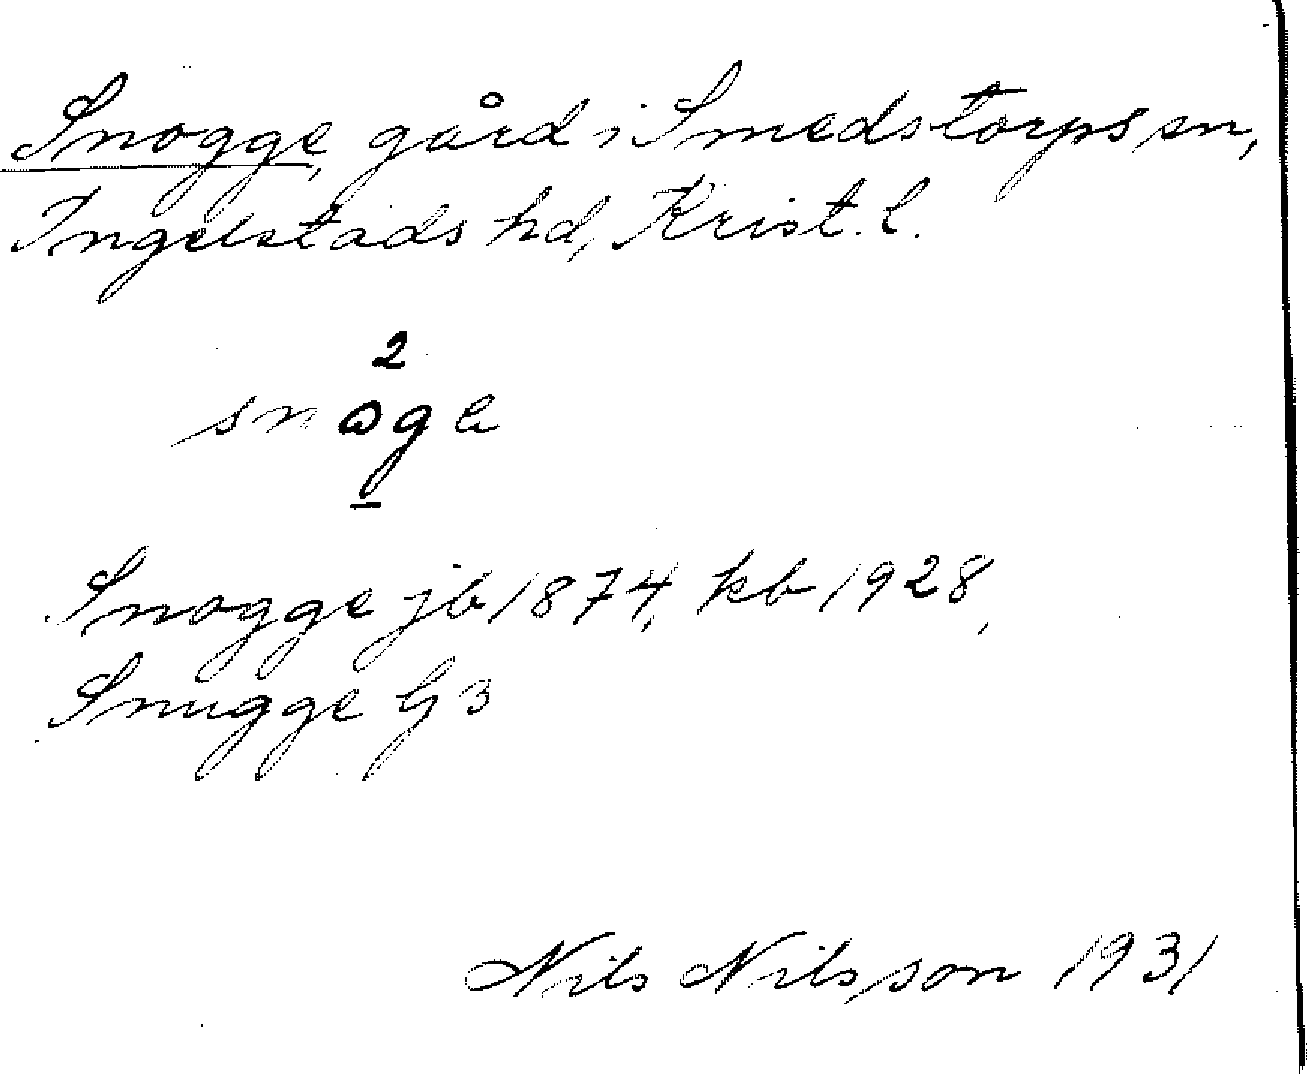 Snogge, gård i Smedstorps sn,
Ingelstads hd, Krist. l.
2
snωgα
Snogge jb 1874, kb 1928,
Snugge G 3
Nils Nilsson 1931